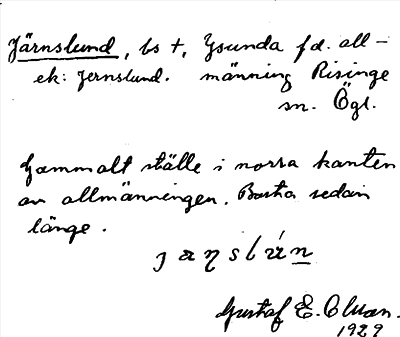 Järnslund, bs +, Ysunda fd. all-
ek: Jernslund. männing Risinge
sn. Ögl.
Gammalt ställe i norra kanten
av allmänningen. Borta sedan
länge.
Gustaf E. Olsson.
1929